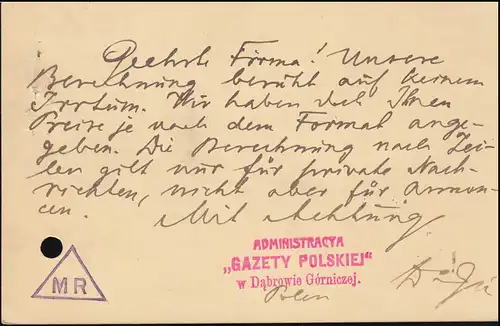 Geehrte Firma! Unsere
Berechnung beruht auf keinem
Irrtum. Wir haben doch Ihnen
Preise je nach dem Format ange-
geben. Die Berechnung nach Zei-
len gilt nur für private Nach-
richten, nicht aber für Annon-
cen. Mit Achtung
ADMINISTRACYA
„GAZETY POLSKIEJ"
w Dąbrowie Górniczej.
Polen
MR